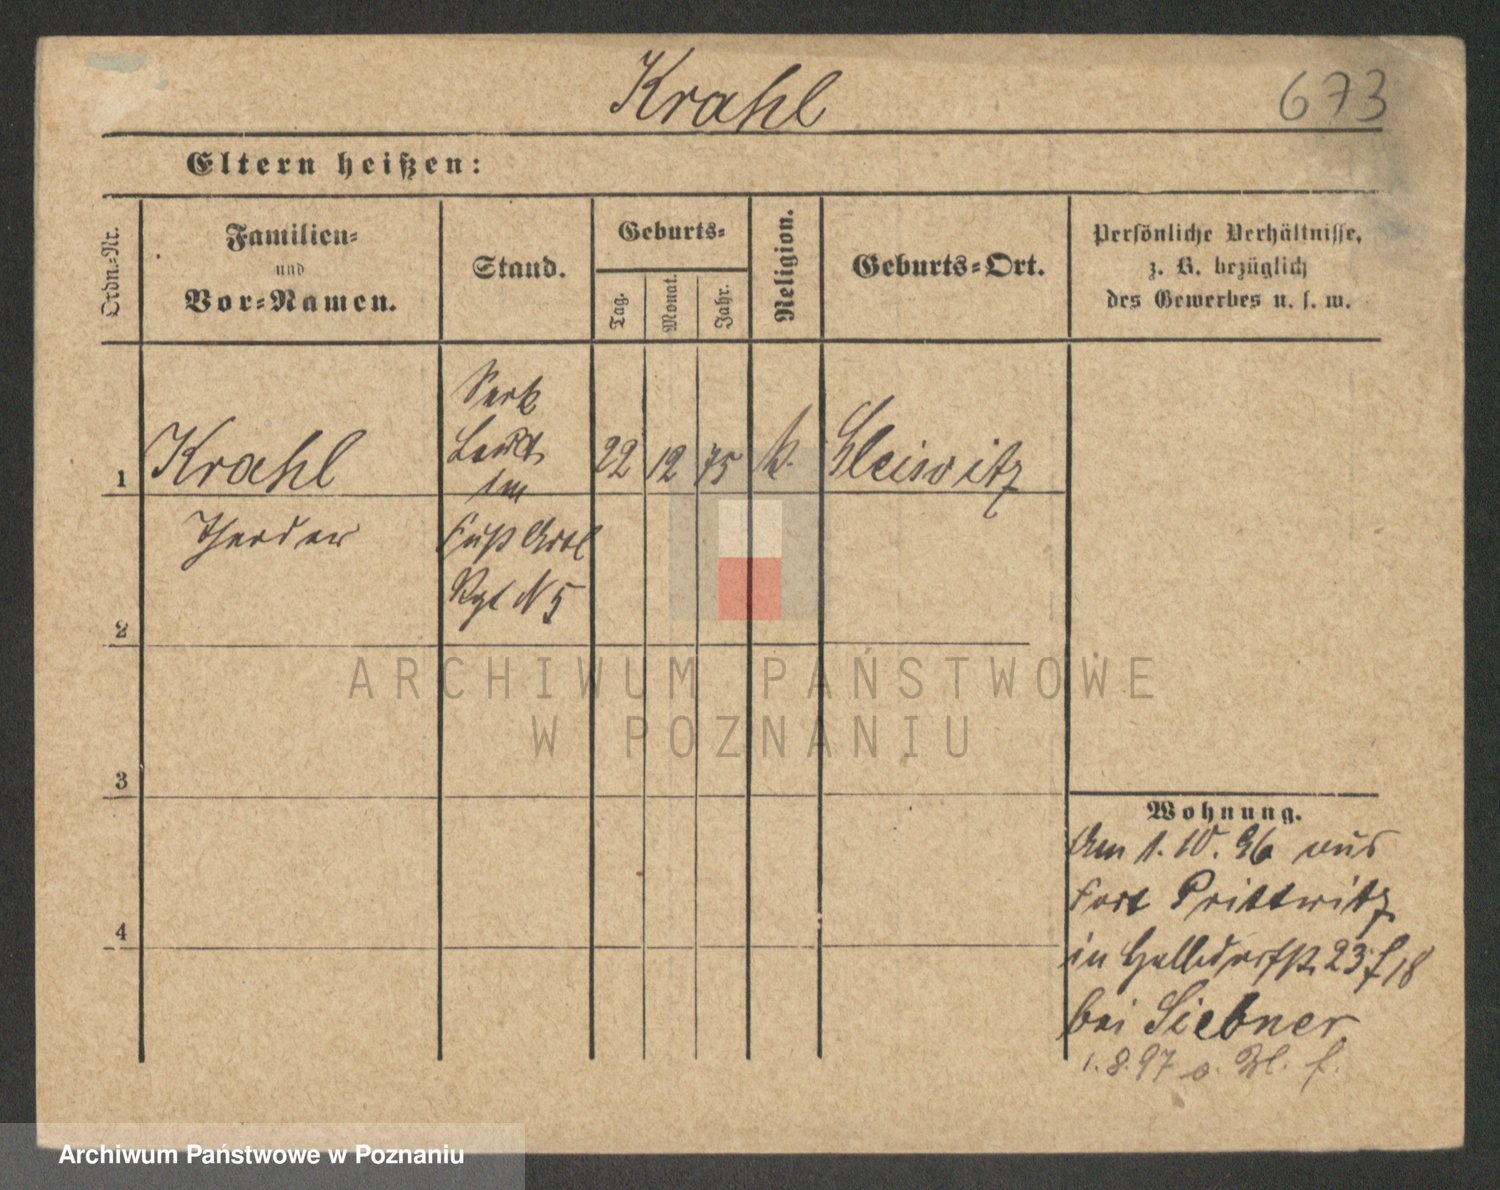 Krahl
673
Eltern heißen:
Ordn.-Nr.
Familien-
und
Vor-Namen.
Stand.
Geburts-
Tag.
Monat.
Jahr.
Religion.
Geburts-Ort.
Persönliche Verhältnisse,
z. B. bezüglich
des Gewerbes u. s. w.
1
Krahl
Theodor
Sek
Leut
im
Fuß Artl
Rgt N 5
22
12
75
k.
Gleiwitz
2
3
4
Wohnung.
Am 1. 10. 96 aus
Fort Prittwitz
in 23
bei Siebner
1. 8. 97
ARCHIWUM PAŃSTWOWE
W POZNANIU
Archiwum Państwowe w Poznaniu